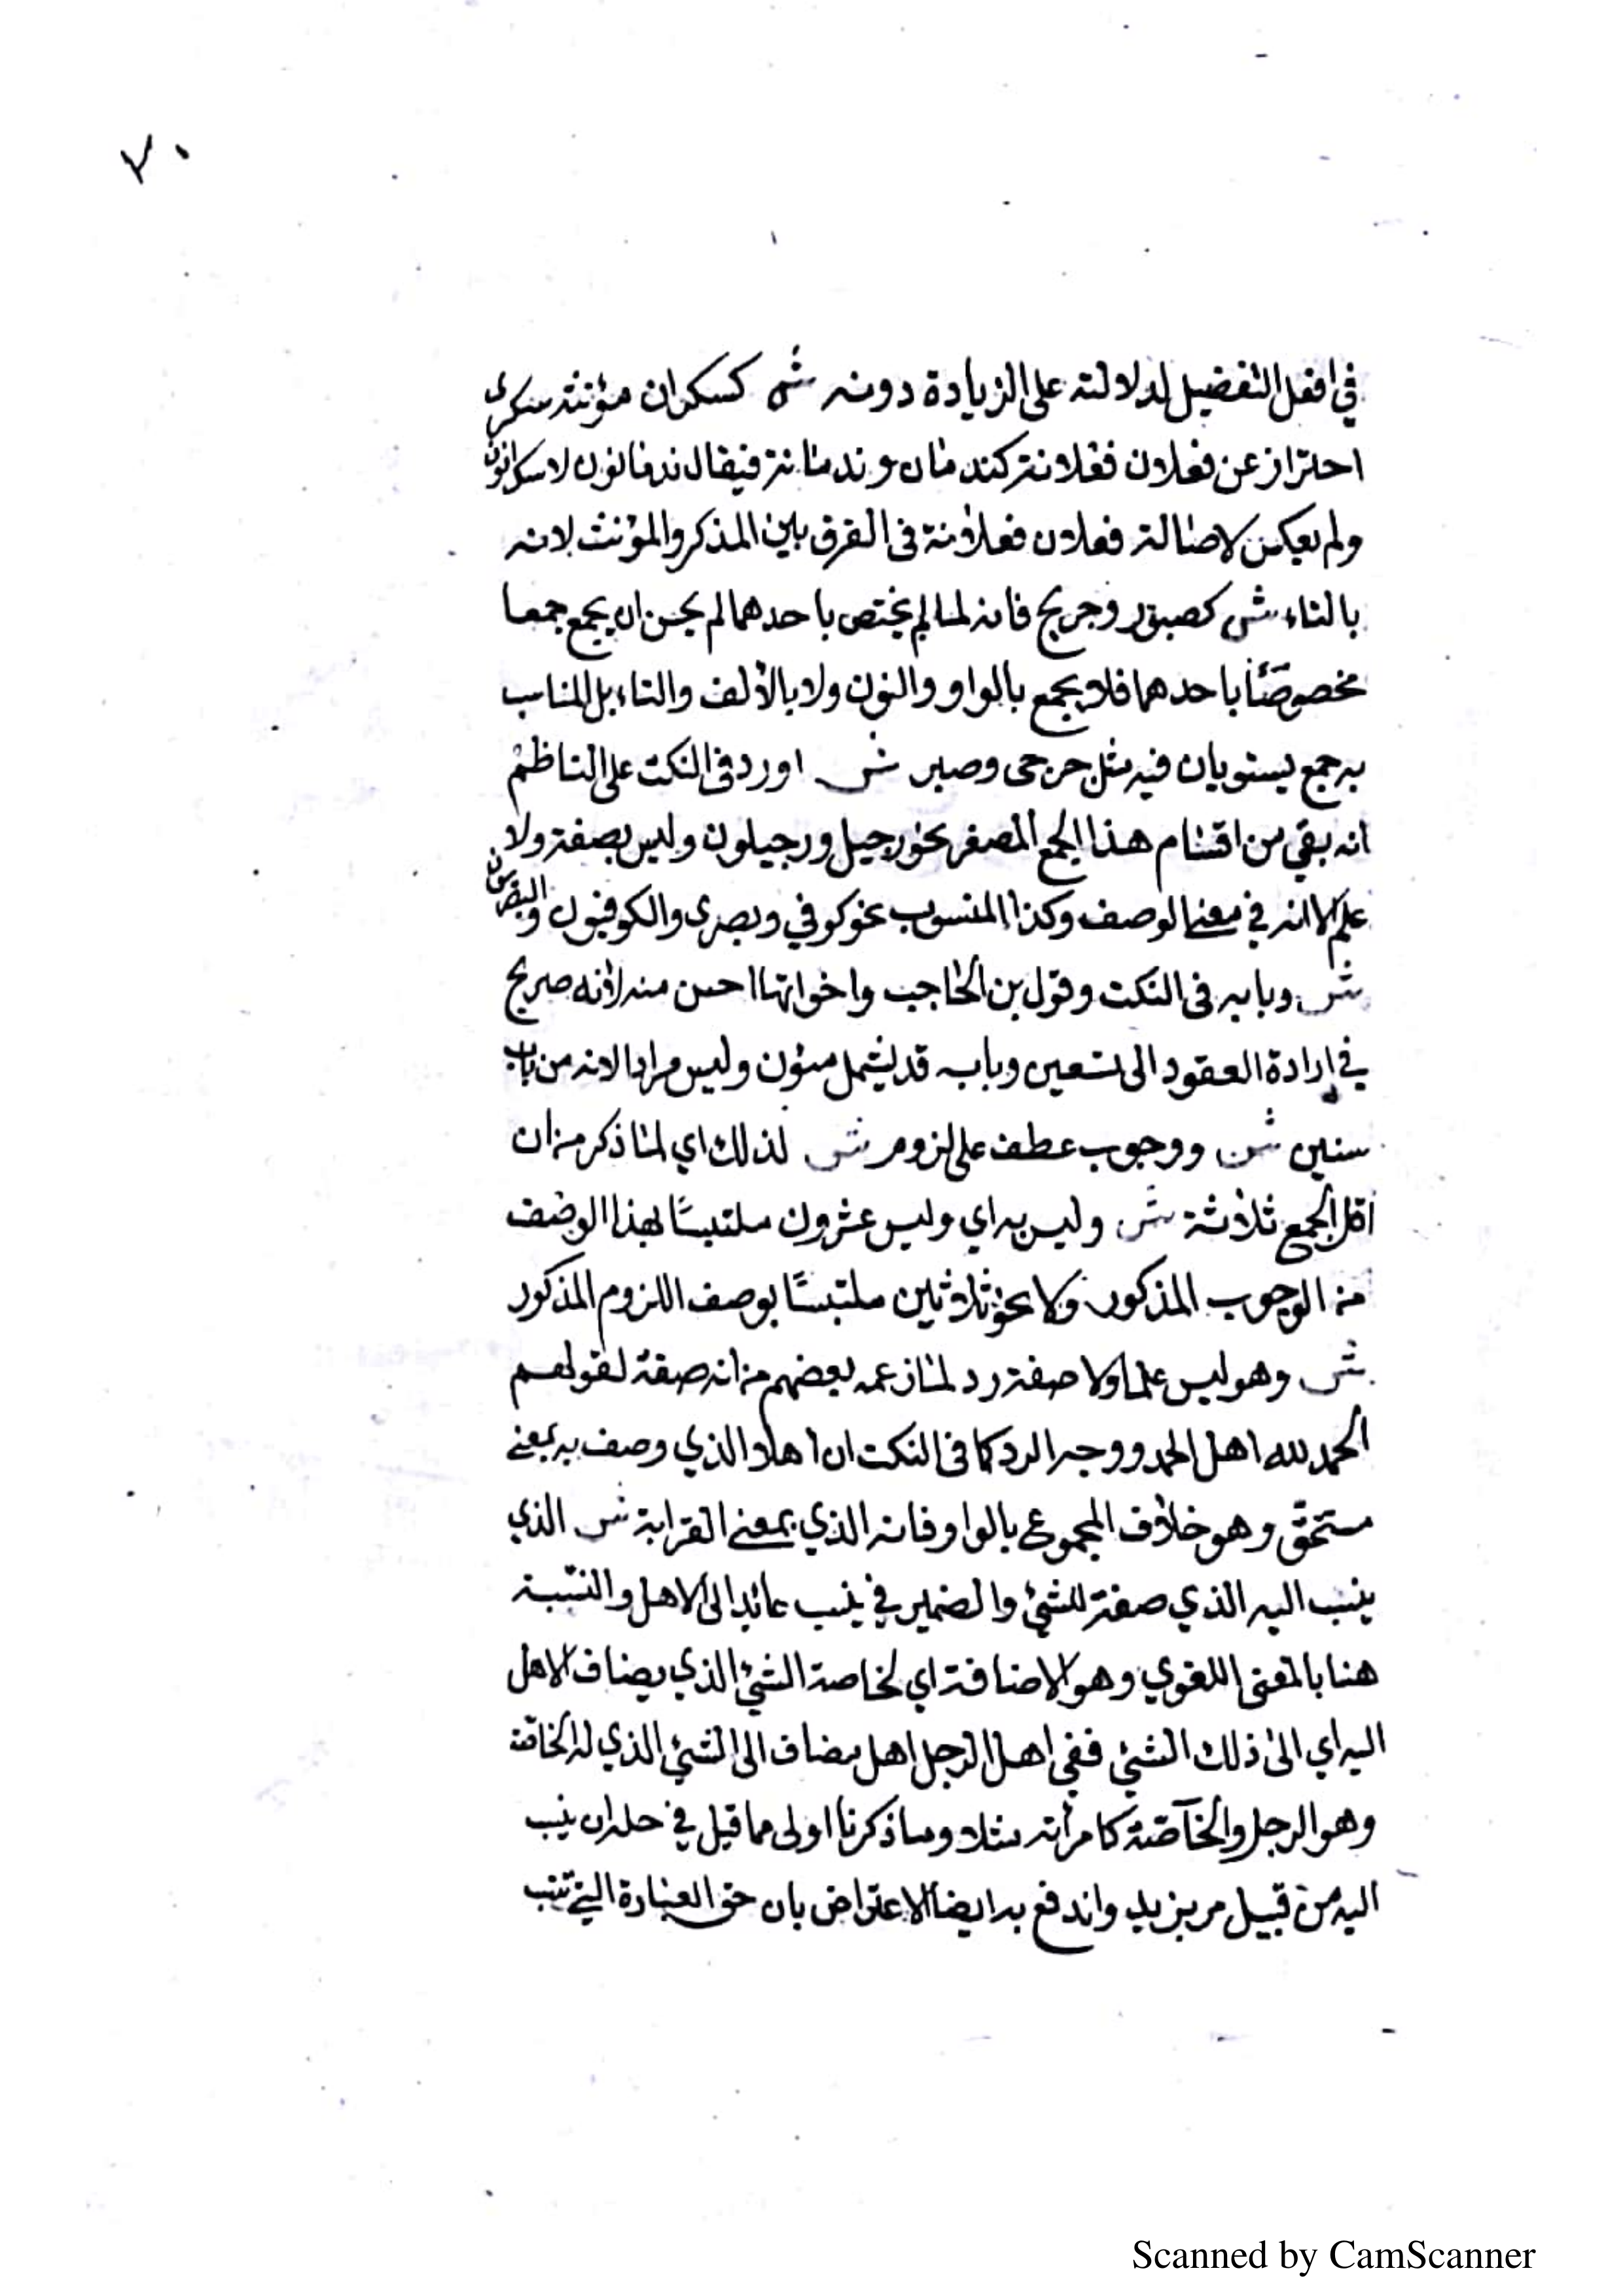 ٧٠
في افعل التفضيل لدلالته على الزيادة دونه ش كسكران مؤنثه سكرى
احتراز عن فعلان فعلانة كندمان وندمانة فيقال ندمانون لا سكرانون
ولم يعكس لاصالة فعلان فعلانة في الفرق بين المذكر والمؤنث لانه
بالتاء ش كصبور وجريح فانه لما لم يختص باحدهما لم يحسن ان يجمع جمعا
مخصوصًا باحدهما فلا يجمع بالواو والنون ولا بالألف والتاء بل المناسب
به جمع يستويان فيه مثل جرحى وصبر ش اورد في النكت على الناظم
انه بقي من اقسام هذا الجمع المصغر نحو رجيل ورجيلون وليس بصفة ولا
علم الا انه في معنى الوصف وكذا المنسوب نحو كوفي وبصرى والكوفيون والبصريون
ش وبابه في النكت وقول بن الحاجب واخواتها احسن منه لأنه صريح
في إرادة العقود الى تسعين وبابه قد يشمل مئون وليس مرادا لانه من باب
سنين ش ووجوب عطف على لزوم ش لذلك اي لما ذكر من ان
أقل الجمع ثلاثة ش وليس به اي وليس عشرون ملتبسًا بهذا الوصف
من الوجوب المذكور ولا نحو ثلاثين ملتبسًا بوصف اللزوم المذكور
ش وهو ليس علما ولا صفة رد لما زعمه بعضهم من انه صفة لقولهم
الحمد لله اهل الحمد ووجه الرد كما في النكت ان اهلا الذي وصف به بمعنى
مستحق وهو خلاف المجموع بالواو فانه الذي بمعنى القرابة ش الذي
ينسب اليه الذي صفة للشئ والضمير في ينسب عائد الى الاهل والنسبة
هنا بالمعنى اللغوي وهو الاضافة اي لخاصة الشئ الذي يضاف الاهل
اليه اي الى ذلك الشئ ففي اهل الرجل اهل مضاف الى الشئ الذي له الخاصة
وهو الرجل والخآصة كامرأته مثلا وما ذكرنا اولى مما قيل في حله ان ينسب
اليه من قبيل مر بزيد واندفع به ايضا الاعتراض بان حق العبارة التي تنسب
Scanned by CamScanner